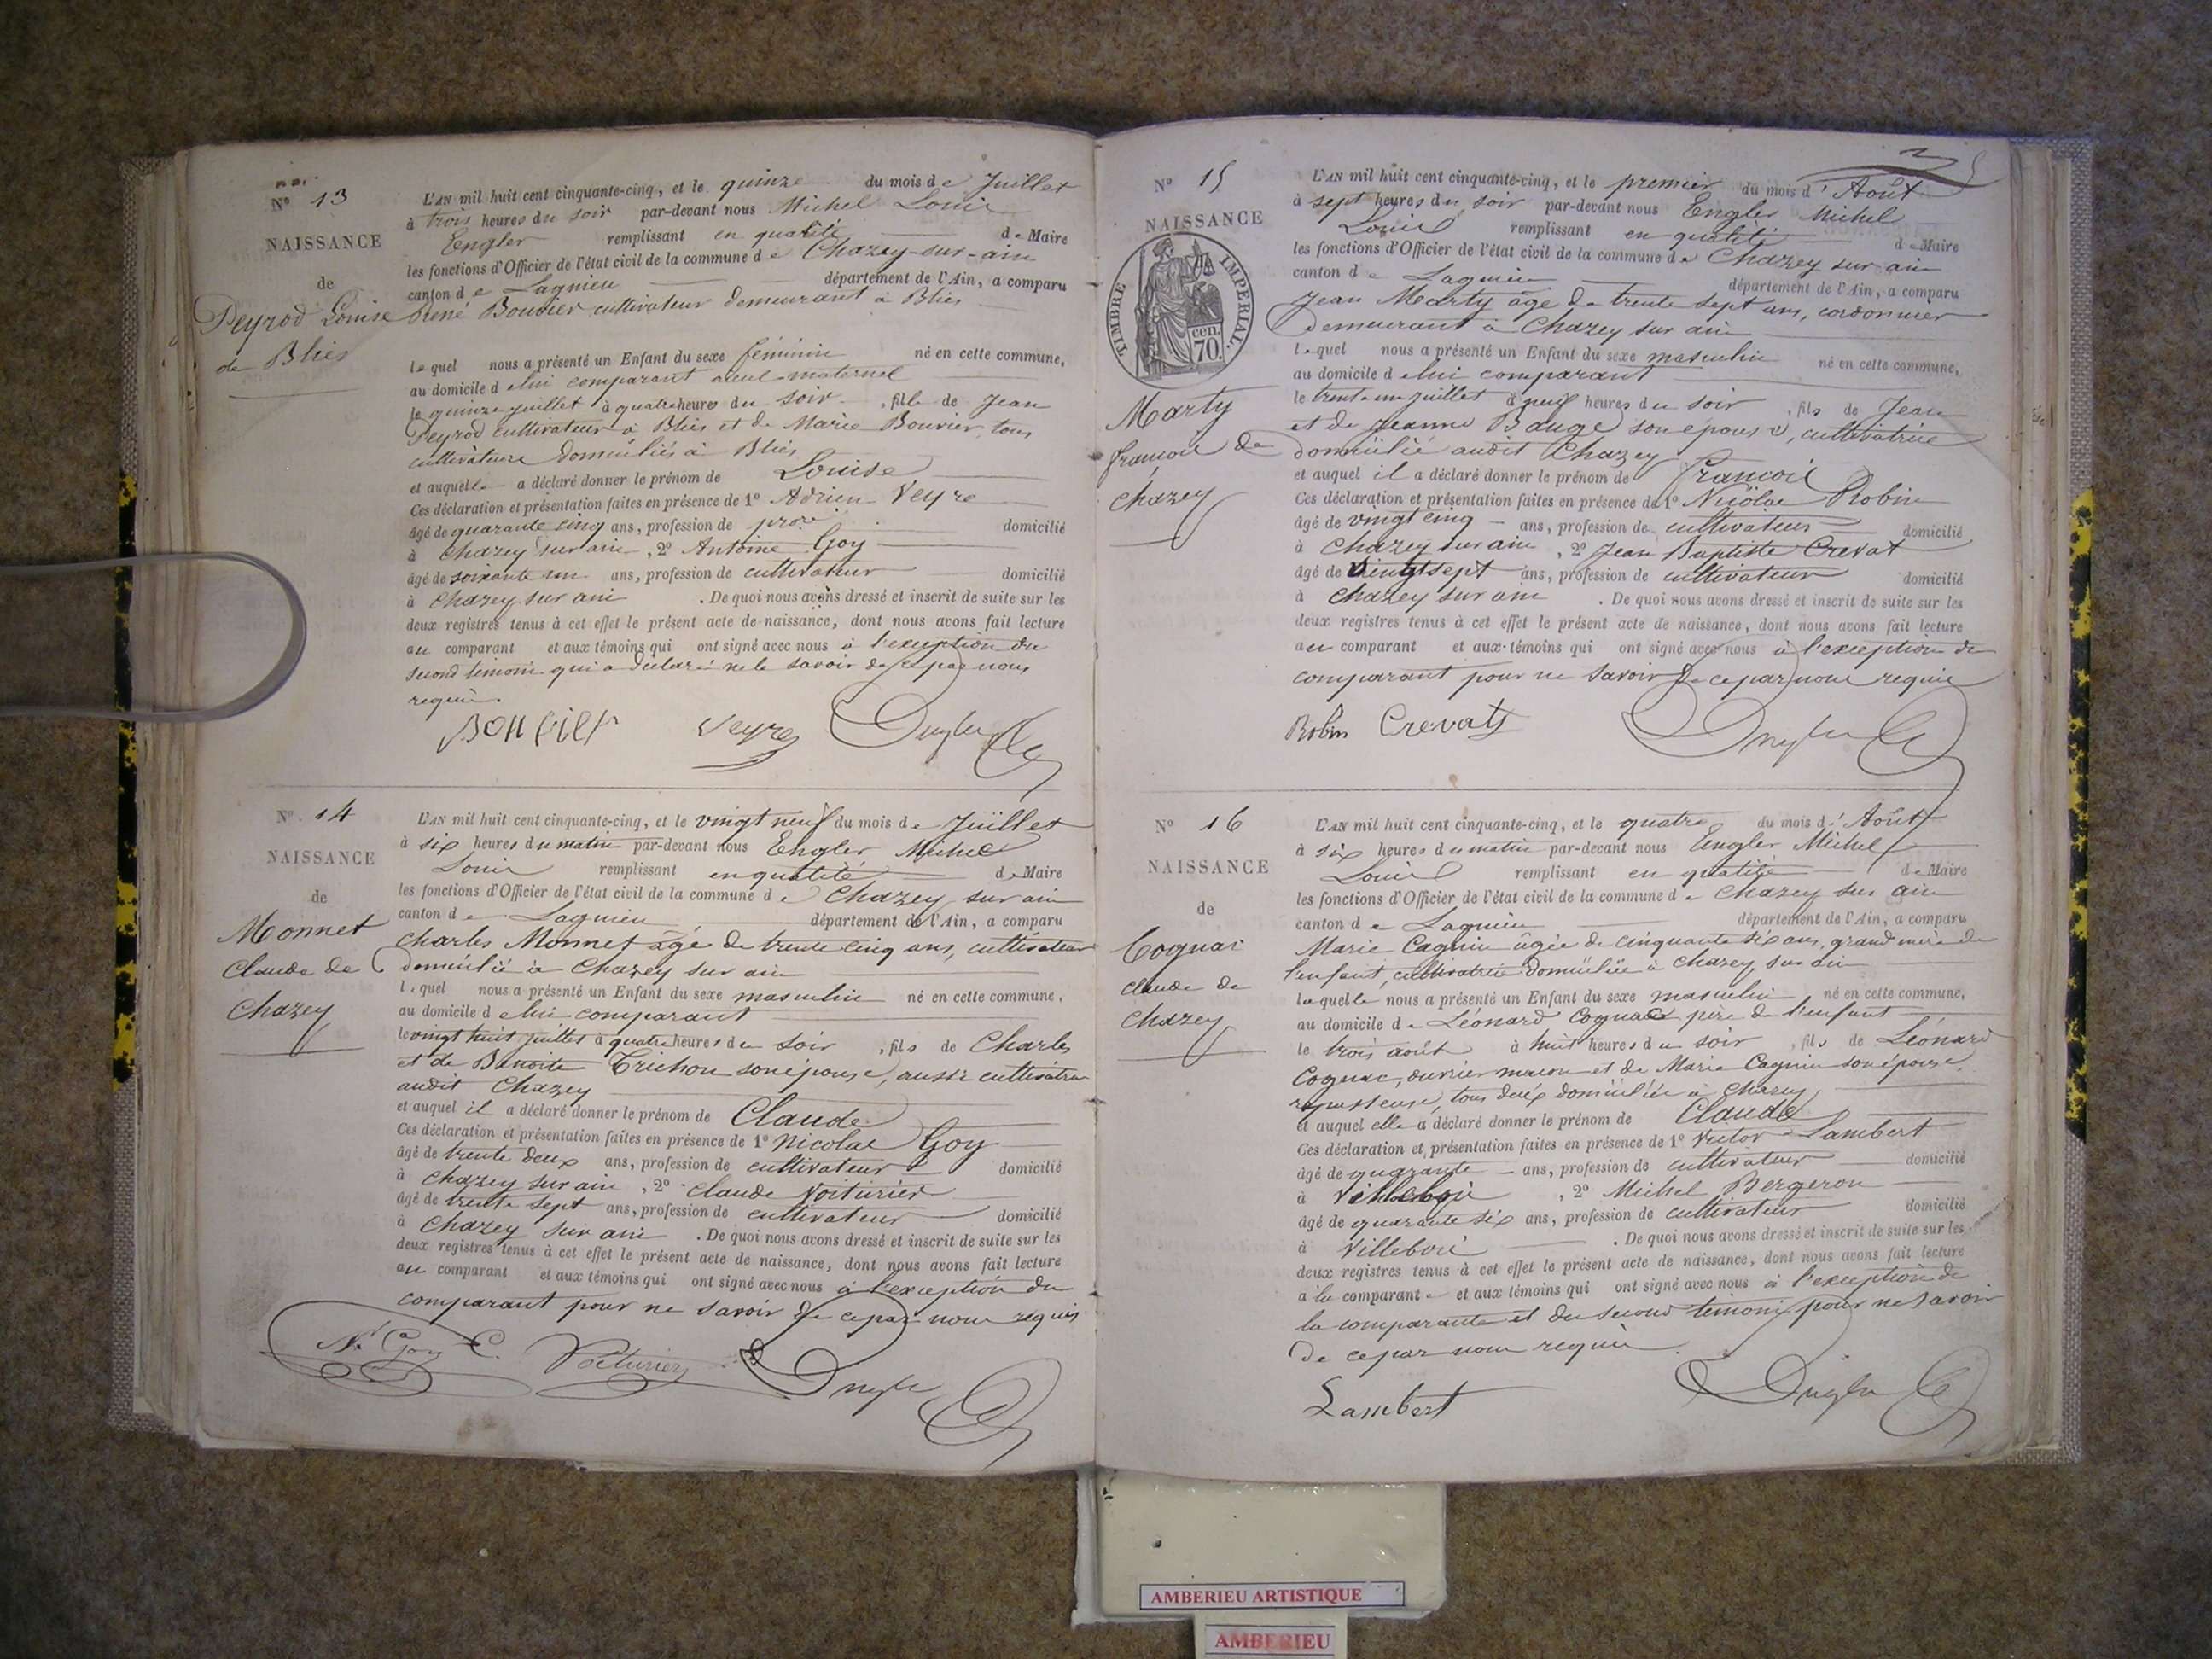 Nº 13
NAISSANCE
de
Peyrod Louise
de Blies
L'AN mil huit cent cinquante-cinq, et le quinze du mois de Juillet
à trois heures du soir par-devant nous Michel Louis
Engler remplissant en qualité de Maire
les fonctions d'Officier de l'état civil de la commune de Chazey-sur-ain
canton de Lagnieu département de l'Ain, a comparu
René Bouvier cultivateur demeurant à Blies
lequel nous a présenté un Enfant du sexe féminin né en cette commune,
au domicile de lui comparant aieul maternel
le quinze juillet à quatre heures du soir, fille de Jean
Peyrod cultivateur à Blies et de Marie Bouvier, tous
cultivateurs domiciliés à Blies
et auquelle a déclaré donner le prénom de Louise
Ces déclaration et présentation faites en présence de 1º Adrien Veyre
âgé de quarante cinq ans, profession de domicilié
à Chazey sur ain, 2º Antoine Goy
âgé de soixante un ans, profession de cultivateur domicilié
à Chazey sur ain . De quoi nous avons dressé et inscrit de suite sur les
deux registres tenus à cet effet le présent acte de naissance, dont nous avons fait lecture
au comparant et aux témoins qui ont signé avec nous à l'exception du
second témoin qui a déclaré ne le savoir de ce par nous
requis.
Bouvier Veyre Engler
Nº 14
NAISSANCE
de
Monnet
Claude de
Chazey
L'AN mil huit cent cinquante-cinq, et le vingt neuf du mois de Juillet
à six heures du matin par-devant nous Engler Michel
Louis remplissant en qualité de Maire
les fonctions d'Officier de l'état civil de la commune de Chazey sur ain
canton de Lagnieu département de l'Ain, a comparu
Charles Monnet âgé de trente cinq ans, cultivateur
domicilié à Chazey sur ain
lequel nous a présenté un Enfant du sexe masculin né en cette commune,
au domicile de lui comparant
le vingt huit juillet à quatre heures du soir, fils de Charles
et de Benoite Trichon son épouse, aussi cultivatrice
audit Chazey
et auquel il a déclaré donner le prénom de Claude
Ces déclaration et présentation faites en présence de 1º Nicolas Goy
âgé de trente deux ans, profession de cultivateur domicilié
à Chazey sur ain, 2º Claude Voiturier
âgé de trente sept ans, profession de cultivateur domicilié
à Chazey sur ain . De quoi nous avons dressé et inscrit de suite sur les
deux registres tenus à cet effet le présent acte de naissance, dont nous avons fait lecture
au comparant et aux témoins qui ont signé avec nous à l'exception du
comparant pour ne savoir de ce par nous requis
Ns Goy C. Voiturier Engler
Nº 15
NAISSANCE
TIMBRE IMPERIAL
70 cen.
Marty
francois de
Chazey
L'AN mil huit cent cinquante-cinq, et le premier du mois d'Août
à sept heures du soir par-devant nous Engler Michel
Louis remplissant en qualité de Maire
les fonctions d'Officier de l'état civil de la commune de Chazey sur ain
canton de Lagnieu département de l'Ain, a comparu
Jean Marty âgé de trente sept ans, cordonnier
demeurant à Chazey sur ain
lequel nous a présenté un Enfant du sexe masculin né en cette commune,
au domicile de lui comparant
le trente un juillet à neuf heures du soir, fils de Jean
et de Jeanne Bauge son épouse, cultivatrice
domiciliée audit Chazey
et auquel il a déclaré donner le prénom de francois
Ces déclaration et présentation faites en présence de 1º Nicolas Robin
âgé de vingt cinq ans, profession de cultivateur domicilié
à Chazey sur ain, 2º Jean Baptiste Crevat
âgé de vingt sept ans, profession de cultivateur domicilié
à Chazey sur ain . De quoi nous avons dressé et inscrit de suite sur les
deux registres tenus à cet effet le présent acte de naissance, dont nous avons fait lecture
au comparant et aux témoins qui ont signé avec nous à l'exception du
comparant pour ne savoir de ce par nous requis
Robin Crevat Engler
Nº 16
NAISSANCE
de
Cognac
claude de
Chazey
L'AN mil huit cent cinquante-cinq, et le quatre du mois d'Août
à six heures du matin par-devant nous Engler Michel
Louis remplissant en qualité de Maire
les fonctions d'Officier de l'état civil de la commune de Chazey sur ain
canton de Lagnieu département de l'Ain, a comparu
Marie Cagnin âgée de cinquante six ans, grand mère de
l'enfant, cultivatrice domiciliée à Chazey sur ain
laquelle nous a présenté un Enfant du sexe masculin né en cette commune,
au domicile de Léonard Cognac père de l'enfant
le trois août à huit heures du soir, fils de Léonard
Cognac, ouvrier maçon et de Marie Cagnin son épouse,
repasseuse, tous deux domiciliés à Chazey
et auquel elle a déclaré donner le prénom de Claude
Ces déclaration et présentation faites en présence de 1º Victor Lambert
âgé de quarante ans, profession de cultivateur domicilié
à Villebois, 2º Michel Bergeron
âgé de quarante six ans, profession de cultivateur domicilié
à Villebois . De quoi nous avons dressé et inscrit de suite sur les
deux registres tenus à cet effet le présent acte de naissance, dont nous avons fait lecture
à la comparante et aux témoins qui ont signé avec nous à l'exception de
la comparante et du second témoin pour ne savoir
de ce par nous requis.
Lambert Engler
AMBERIEU ARTISTIQUE
AMBERIEU